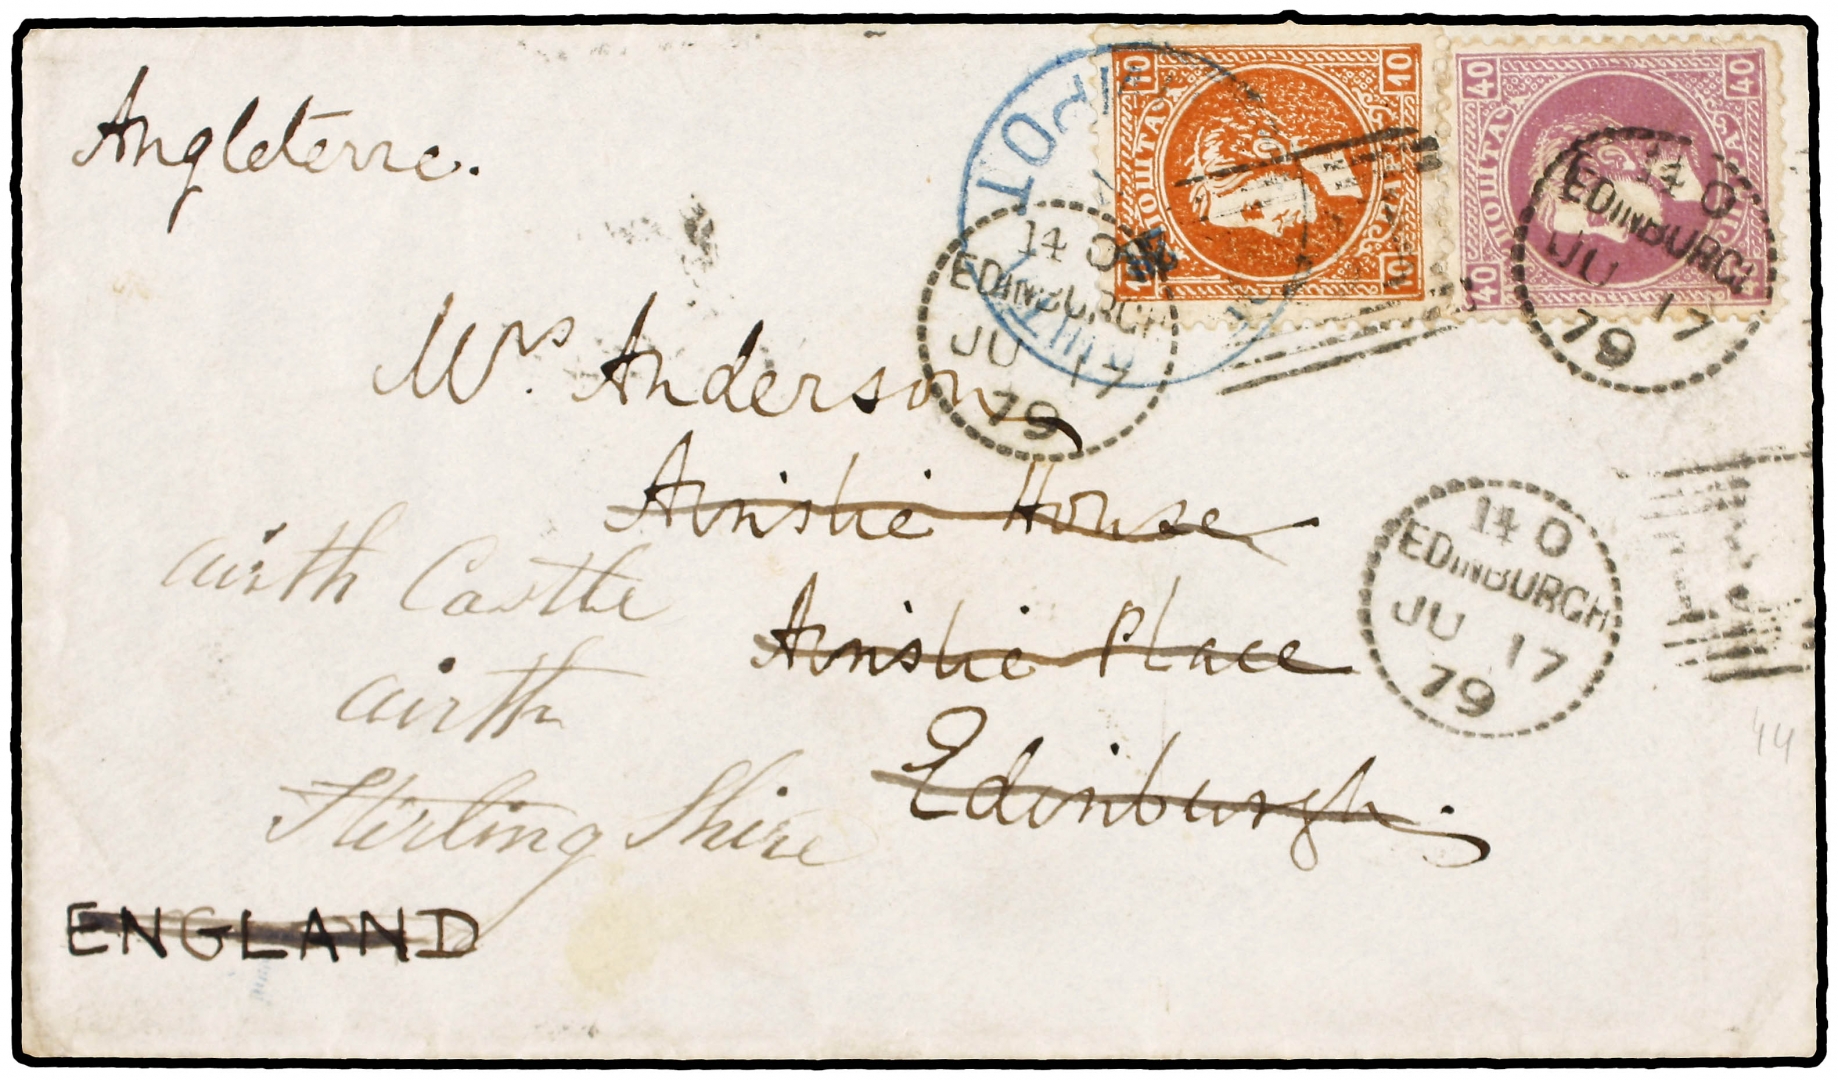 Angleterre.
10 10
ПОШТА
10 10
40 40
ПОШТА
40
14 O
EDINBURGH
JU 17
79
14 O
EDINBURGH
JU 17
79
Mrs. Anderson
Ainslie House
Ainslie Place
Edinburgh.
airth Castle
airth
Stirling Shire
14 O
EDINBURGH
JU 17
79
44
ENGLAND